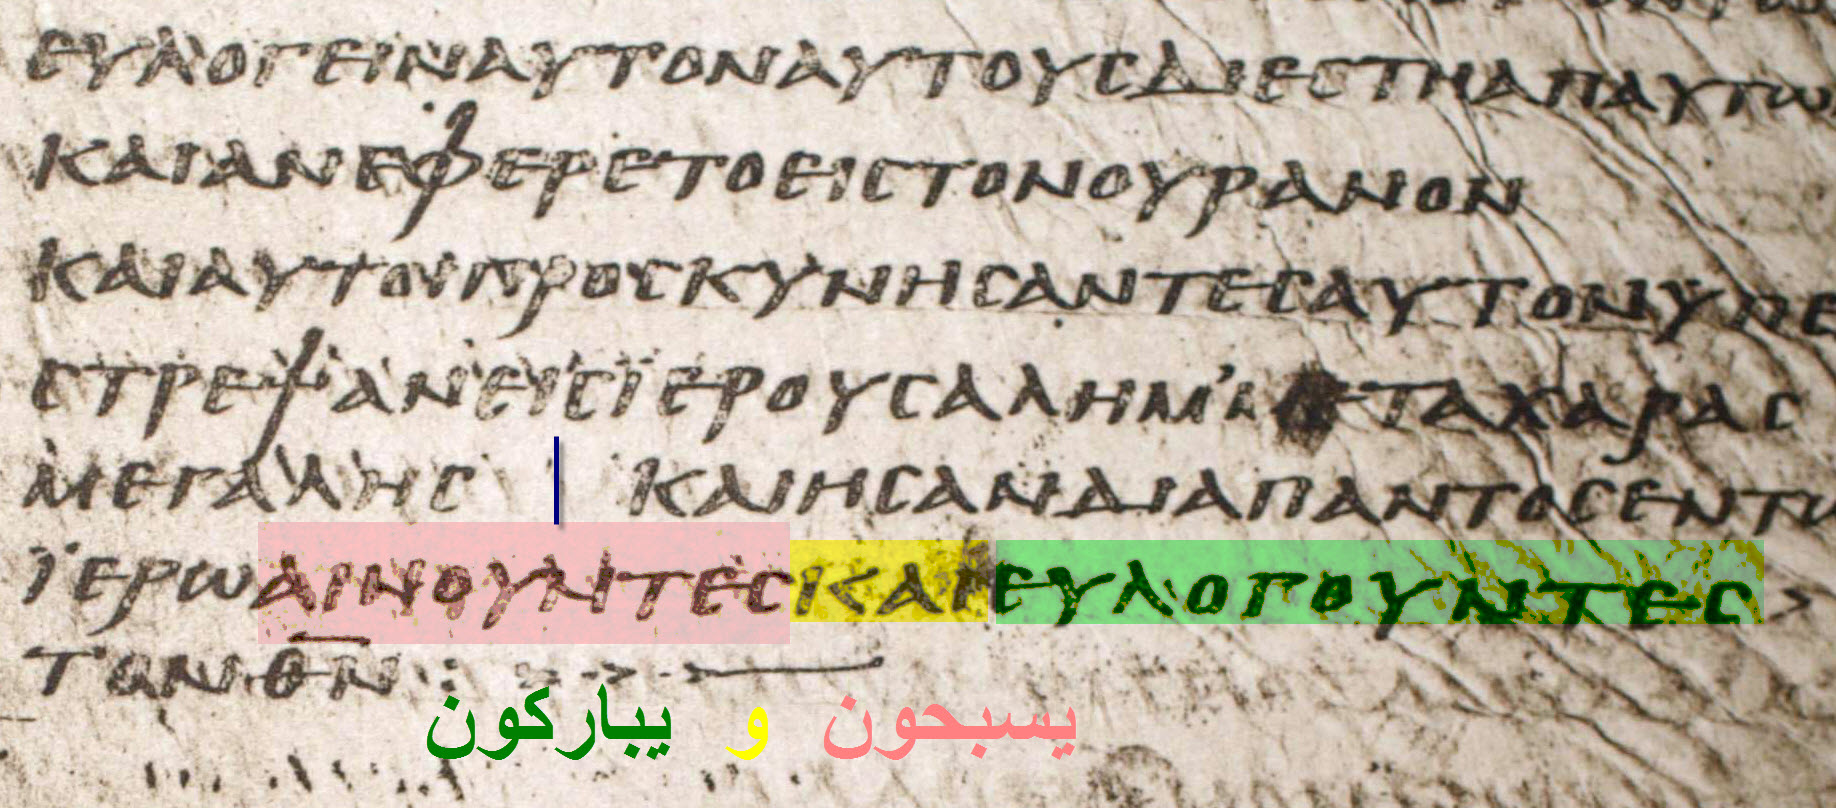 ΕΥΛΟΓΕΙΝΑΥΤΟΝΑΥΤΟΥΣΔΙΕΣΤΗΑΠΑΥΤΩ
ΚΑΙΑΝΕΦΕΡΕΤΟΕΙΣΤΟΝΟΥΡΑΝΟΝ
ΚΑΙΑΥΤΟΙΠΡΟΣΚΥΝΗΣΑΝΤΕΣΑΥΤΟΝΥΠΕ
ΣΤΡΕΨΑΝΕΙΣΪΕΡΟΥΣΑΛΗΜʼΜΕΤΑΧΑΡΑΣ
ΜΕΓΑΛΗΣ ΚΑΙΗΣΑΝΔΙΑΠΑΝΤΟΣΕΝΤΩ
ΪΕΡΩΑΙΝΟΥΝΤΕΣΚΑΙΕΥΛΟΓΟΥΝΤΕΣ>
ΤΟΝΘ̅Ν̅ : > > > —
يسبحون و يباركون